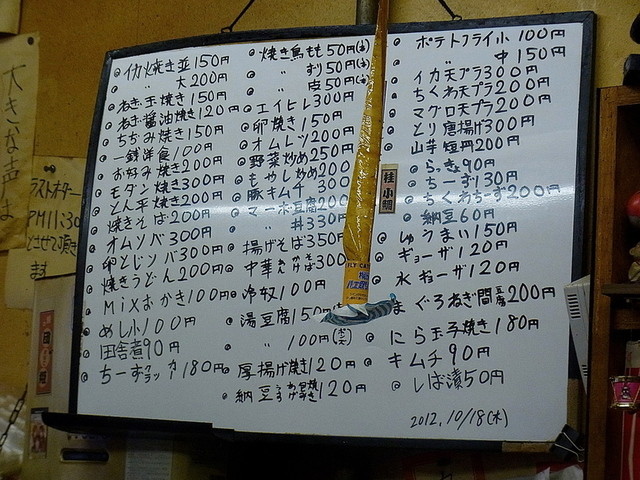 イカ焼き並150円
〃 大200円
ねぎ玉焼き150円
ねぎ醤油焼き120円
ちぢみ焼き150円
一銭洋食100円
お好み焼き200円
モダン焼き300円
とん平焼き200円
焼きそば200円
オムソバ300円
卵とじソバ300円
焼きうどん200円
Mixおかき100円
めし小100円
田舎煮90円
ちーずクラッカー180円
焼き鳥もも50円
〃 ずり50円
〃 皮50円
エイヒレ300円
卵焼き150円
オムレツ200円
野菜炒め250円
もやし炒め200
豚キムチ 300
マーボ豆腐200
〃 丼330
揚げそば350
中華 300
冷奴100円
湯豆腐150
〃 100円
厚揚げ焼き120円
納豆 120円
ポテトフライ小100円
〃 中150円
イカ天プラ300円
ちくわ天プラ200円
マグロ天プラ200円
とり唐揚げ300円
山芋短冊200円
らっきょ90円
ちーず130円
ちくわちーず200円
納豆60円
しゅうまい150円
ギョーザ120円
水ギョーザ120円
まぐろねぎ間串200円
にら玉子焼き180円
キムチ90円
しば漬50円
2012.10/18(木)
桂小鯛
大きな声
ラストオーダー
PM11:30
とさせて頂き
ます